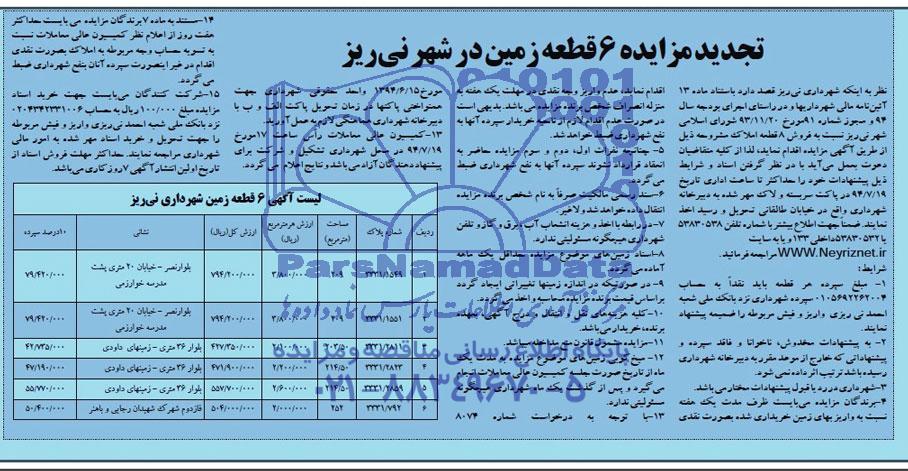 تجدید مزایده ۶ قطعه زمین در شهر نی‌ریز
نظر به اینکه شهرداری نی‌ریز قصد دارد باستناد ماده ۱۳
آئین‌نامه مالی شهرداریها و در راستای اجرای بودجه سال
۹۴ و مجوز شماره ۹۱ مورخ ۹۳/۱۱/۲۰ شورای اسلامی
شهر نی‌ریز نسبت به فروش ۸ قطعه املاک مشروحه ذیل
از طریق آگهی مزایده اقدام نماید، لذا از کلیه متقاضیان
دعوت بعمل می‌آید با در نظر گرفتن اسناد و شرایط
ذیل پیشنهادات خود را حداکثر تا ساعت اداری تاریخ
۹۴/۷/۱۹ در پاکت سربسته و لاک مهر شده به دبیرخانه
شهرداری واقع در خیابان طالقانی تحویل و رسید اخذ
نمایند. ضمناً جهت اطلاع بیشتر با شماره تلفن ۵۳۸۳۰۵۳۸
یا ۵۳۸۳۰۵۳۲ داخلی ۱۳۳ و یا به سایت
WWW.Neyriznet.ir مراجعه فرمائید.
شرایط:
۱- مبلغ سپرده هر قطعه باید نقداً به حساب
۰۱۰۵۶۹۲۲۶۲۰۰۴ سپرده شهرداری نزد بانک ملی شعبه
احمد نی ریزی واریز و فیش مربوطه را ضمیمه پیشنهاد
نمایند.
۲- به پیشنهادات مخدوش، ناخوانا و فاقد سپرده و
پیشنهاداتی که خارج از موعد مقرر به دبیرخانه شهرداری
رسیده باشد ترتیب اثر داده نمی شود.
۳- شهرداری در رد یا قبول پیشنهادات مختار می‌باشد.
۴- برندگان مزایده می‌بایست ظرف مدت یک هفته
نسبت به واریز بهای زمین خریداری شده بصورت نقدی
اقدام نماید، عدم واریز وجه نقدی در مهلت یک هفته به
منزله انصراف شخص برنده مزایده می باشد. بدیهی است
در صورت عدم اقدام لازم از طرف خریدار سپرده آنها به
نفع شهرداری ضبط خواهد شد.
۵- چنانچه نفرات اول، دوم و سوم مزایده حاضر به
انعقاد قرارداد نشوند سپرده آنها به نفع شهرداری ضبط
می‌گردد.
۶- سند رسمی مالکیت صرفاً به نام شخص برنده مزایده
انتقال داده خواهد شد ولاغیر.
۷- در رابطه با اخذ و هزینه انشعاب آب و برق و گاز و تلفن
شهرداری هیچگونه مسئولیتی ندارد.
۸- اسناد زمین‌های موضوع مزایده حداقل یک ماهه
آماده می گردد.
۹- در صورتیکه در اندازه زمینها تغییراتی ایجاد گردد
براساس قیمت برنده مزایده محاسبه و اخذ می گردد.
۱۰- کلیه هزینه‌های نقل و انتقال و درج آگهی بعهده
برنده خریدار می باشد.
۱۱- مزایده مشمول قانون منع مداخله میباشد.
ماه از تاریخ صورت جلسه کمیسیون عالی معاملات انجام
می گیرد و پس از گذشت یک ماه شهرداری هیچگونه
مسئولیتی ندارد.
۱۳- با توجه به درخواست شماره ۸۰۷۴
مورخ ۱۳۹۴/۶/۱۵ واحد حقوقی شهرداری جهت
همنواختی پاکتها در زمان تحویل پاکت الف و ب با
دبیرخانه شهرداری هماهنگی لازم به عمل آورند.
۱۳- کمیسیون عالی معاملات راس ساعت ۱۷ مورخ
۹۴/۷/۱۹ در محل شهرداری تشکیل و شرکت برای
پیشنهاد دهندگان آزاد می باشد و نتایج اعلام می گردد.
۱۴- مستند به ماده ۷ برندگان مزایده می بایست حداکثر
هفت روز از اعلام نظر کمیسیون عالی معاملات نسبت
به تسویه حساب وجه مربوطه به املاک بصورت نقدی
اقدام در غیر اینصورت سپرده آنان بنفع شهرداری ضبط
می گردد.
۱۵- شرکت کنندگان می‌بایست جهت خرید اسناد
مزایده مبلغ ۱۰۰/۰۰۰ ریال به حساب ۰۲۰۴۳۴۲۳۳۱۰۰۶
نزد بانک ملی شعبه احمد نی ریزی واریز و فیش مربوطه
را جهت تحویل و خرید اسناد مهر شده به امور مالی
شهرداری مراجعه نمایند. حداکثر مهلت فروش اسناد از
تاریخ اولین انتشار آگهی ۷ روز کاری می‌باشد.
لیست آگهی ۶ قطعه زمین شهرداری نی‌ریز
ردیف شماره پلاک مساحت (مترمربع) ارزش هر مترمربع (ریال) ارزش کل (ریال) نشانی ۱۰ درصد سپرده
۱ ۳۳۳۱/۱۵۴۹ ۲۰۹ ۳/۸۰۰/۰۰۰ ۷۹۴/۲۰۰/۰۰۰ بلوار نصر - خیابان ۲۰ متری پشت مدرسه خوارزمی ۷۹/۴۲۰/۰۰۰
۲ ۳۳۳۱/۱۵۵۱ ۲۰۹ ۳/۸۰۰/۰۰۰ ۷۹۴/۲۰۰/۰۰۰ بلوار نصر - خیابان ۲۰ متری پشت مدرسه خوارزمی ۷۹/۴۲۰/۰۰۰
۳ ۲۰۳/۵۰ ۲/۱۰۰/۹۰۰ ۴۲۷/۳۵۰/۰۰۰ بلوار ۳۶ متری - زمینهای داودی ۴۲/۷۳۵/۰۰۰
۴ ۳۳۳۱/۲۸۲۳ ۲۱۴/۵۰ ۲/۲۰۰/۰۰۰ ۴۷۱/۹۰۰/۰۰۰ بلوار ۳۶ متری - زمینهای داودی ۴۷/۱۹۰/۰۰۰
۵ ۳۳۳۱/۲۸۵۹ ۲۱۴/۵۰ ۲/۶۰۰/۰۰۰ ۵۵۷/۷۰۰/۰۰۰ بلوار ۳۶ متری - زمینهای داودی ۵۵/۷۷۰/۰۰۰
۶ ۳۳۳۱/۷۹۲ ۲۵۲ ۲/۰۰۰/۰۰۰ ۵۰۴/۰۰۰/۰۰۰ فاز دوم شهرک شهیدان رجایی و باهنر ۵۰/۴۰۰/۰۰۰
ParsNamadData
پایگاه اطلاع رسانی مناقصه و مزایده
۰۲۱-۸۸۳۴۹۶۷۰-۵